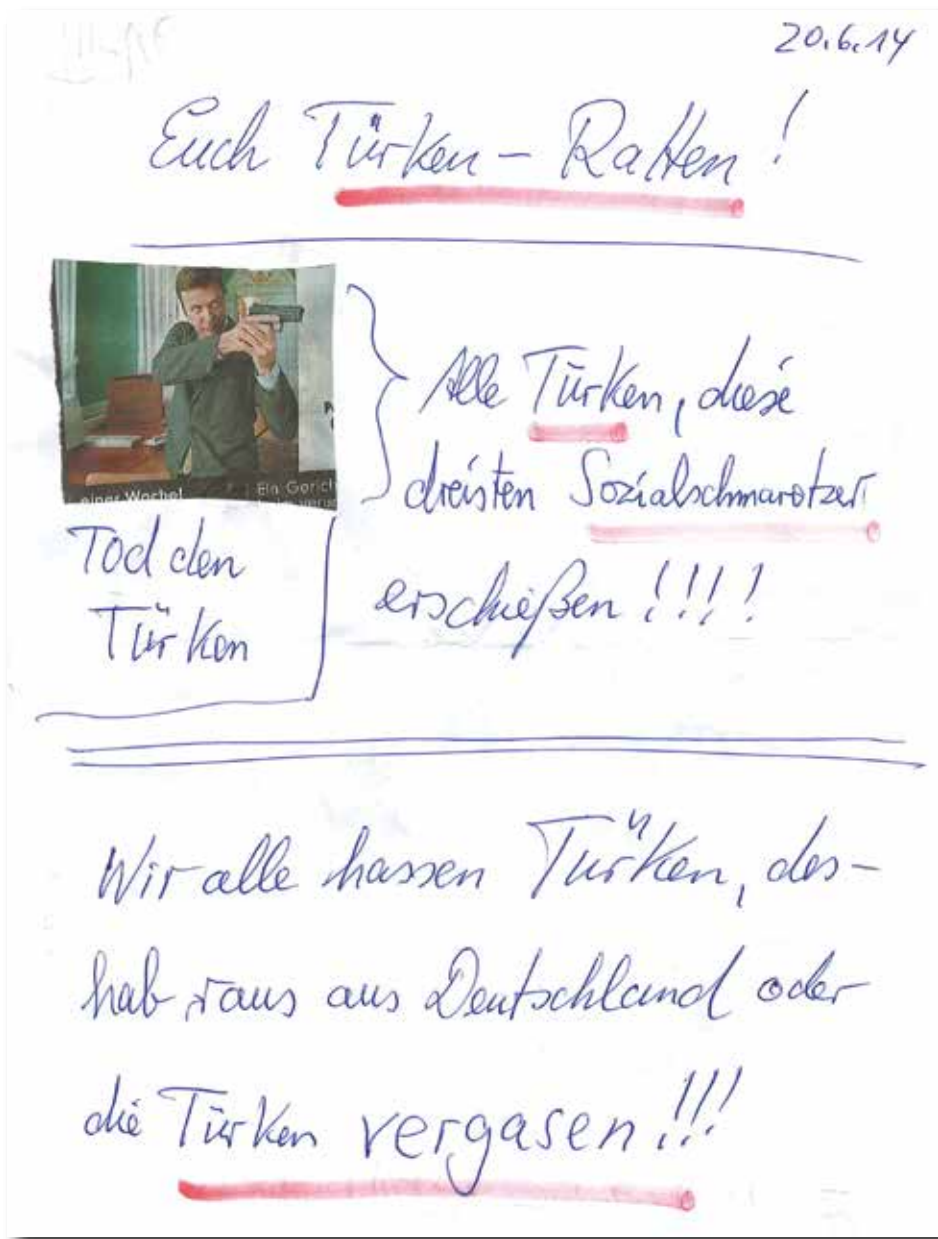 20.6.14
Euch Türken - Ratten!
einer Woche!
Ein Gerich
Alle Türken, diese
dreisten Sozialschmarotzer
erschießen !!!!
Tod den
Türken
Wir alle hassen Türken, des-
hab raus aus Deutschland oder
die Türken vergasen!!!